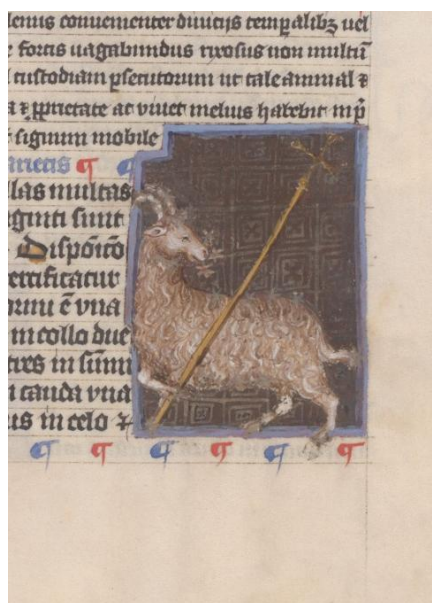 lenius conuenienter diuitijs tempalibz uel
fortis uagabundus rixosus non multū
custodiam psecutorum ut tale animal
pprietate ac uiuet melius habebit
signum mobile
arietis ¶
las multas
sunt
Dispōico
certificatur
ormi ē vna
in collo due
tres in sūmi
cauda vna
us in celo ⁊
¶ ¶ ¶ ¶ ¶ ¶